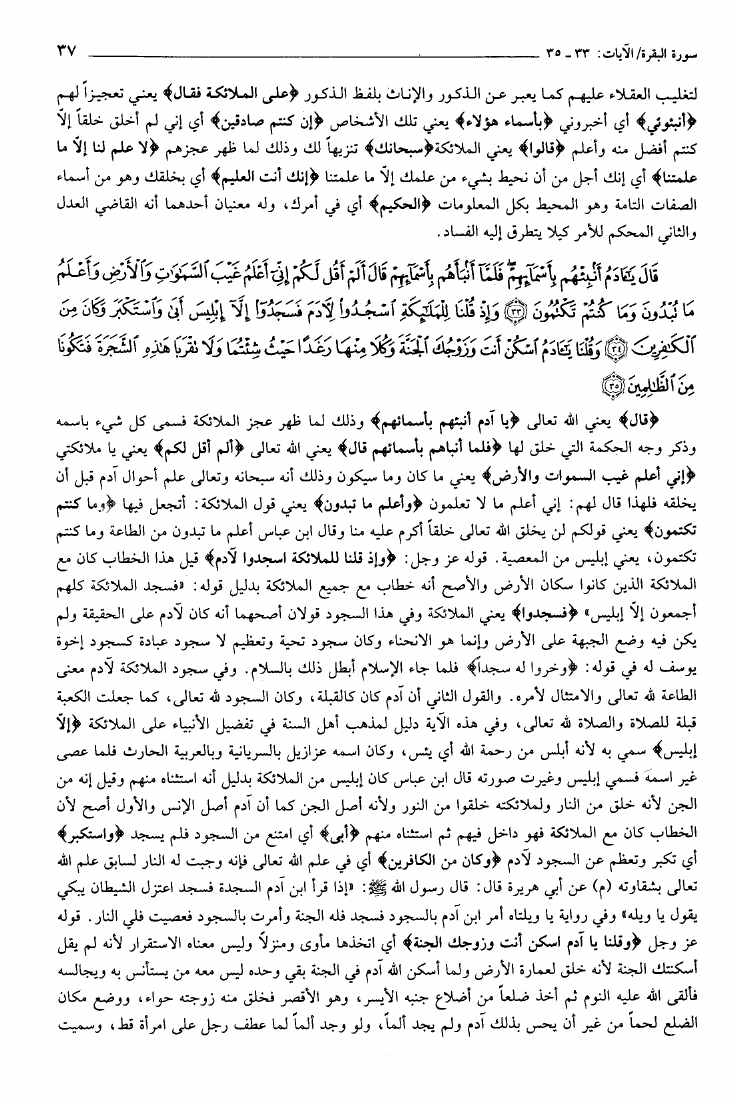 سورة البقرة/ الآيات: ٣٣ ـ ٣٥ ٣٧
لتغليب العقلاء عليهم كما يعبر عن الذكور والإناث بلفظ الذكور ﴿على الملائكة فقال﴾ يعني تعجيزاً لهم
﴿أنبئوني﴾ أي أخبروني ﴿بأسماء هؤلاء﴾ يعني تلك الأشخاص ﴿إن كنتم صادقين﴾ أي إني لم أخلق خلقاً إلّا
كنتم أفضل منه وأعلم ﴿قالوا﴾ يعني الملائكة﴿سبحانك﴾ تنزيهاً لك وذلك لما ظهر عجزهم ﴿لا علم لنا إلّا ما
علمتنا﴾ أي إنك أجل من أن نحيط بشيء من علمك إلّا ما علمتنا ﴿إنك أنت العليم﴾ أي بخلقك وهو من أسماء
الصفات التامة وهو المحيط بكل المعلومات ﴿الحكيم﴾ أي في أمرك، وله معنيان أحدهما أنه القاضي العدل
والثاني المحكم للأمر كيلا يتطرق إليه الفساد.
قَالَ يَٰٓـَٔادَمُ أَنۢبِئْهُم بِأَسْمَآئِهِمْ ۖ فَلَمَّآ أَنۢبَأَهُم بِأَسْمَآئِهِمْ قَالَ أَلَمْ أَقُل لَّكُمْ إِنِّىٓ أَعْلَمُ غَيْبَ ٱلسَّمَٰوَٰتِ وَٱلْأَرْضِ وَأَعْلَمُ
مَا تُبْدُونَ وَمَا كُنتُمْ تَكْتُمُونَ ﴿٣٣﴾ وَإِذْ قُلْنَا لِلْمَلَٰٓئِكَةِ ٱسْجُدُوا۟ لِـَٔادَمَ فَسَجَدُوٓا۟ إِلَّآ إِبْلِيسَ أَبَىٰ وَٱسْتَكْبَرَ وَكَانَ مِنَ
ٱلْكَٰفِرِينَ ﴿٣٤﴾ وَقُلْنَا يَٰٓـَٔادَمُ ٱسْكُنْ أَنتَ وَزَوْجُكَ ٱلْجَنَّةَ وَكُلَا مِنْهَا رَغَدًا حَيْثُ شِئْتُمَا وَلَا تَقْرَبَا هَٰذِهِ ٱلشَّجَرَةَ فَتَكُونَا
مِنَ ٱلظَّٰلِمِينَ ﴿٣٥﴾
﴿قال﴾ يعني الله تعالى ﴿يا آدم أنبئهم بأسمائهم﴾ وذلك لما ظهر عجز الملائكة فسمى كل شيء باسمه
وذكر وجه الحكمة التي خلق لها ﴿فلما أنباهم بأسمائهم قال﴾ يعني الله تعالى ﴿ألم أقل لكم﴾ يعني يا ملائكتي
﴿إني أعلم غيب السموات والأرض﴾ يعني ما كان وما سيكون وذلك أنه سبحانه وتعالى علم أحوال آدم قبل أن
يخلقه فلهذا قال لهم: إني أعلم ما لا تعلمون ﴿وأعلم ما تبدون﴾ يعني قول الملائكة: أتجعل فيها ﴿وما كنتم
تكتمون﴾ يعني قولكم لن يخلق الله تعالى خلقاً أكرم عليه منا وقال ابن عباس أعلم ما تبدون من الطاعة وما كنتم
تكتمون، يعني إبليس من المعصية. قوله عز وجل: ﴿وإذ قلنا للملائكة اسجدوا لآدم﴾ قيل هذا الخطاب كان مع
الملائكة الذين كانوا سكان الأرض والأصح أنه خطاب مع جميع الملائكة بدليل قوله: «فسجد الملائكة كلهم
أجمعون إلّا إبليس» ﴿فسجدوا﴾ يعني الملائكة وفي هذا السجود قولان أصحهما أنه كان لآدم على الحقيقة ولم
يكن فيه وضع الجبهة على الأرض وإنما هو الانحناء وكان سجود تحية وتعظيم لا سجود عبادة كسجود إخوة
يوسف له في قوله: ﴿وخروا له سجداً﴾ فلما جاء الإسلام أبطل ذلك بالسلام. وفي سجود الملائكة لآدم معنى
الطاعة لله تعالى والامتثال لأمره. والقول الثاني أن آدم كان كالقبلة، وكان السجود لله تعالى، كما جعلت الكعبة
قبلة للصلاة والصلاة لله تعالى، وفي هذه الآية دليل لمذهب أهل السنة في تفضيل الأنبياء على الملائكة ﴿إلّا
إبليس﴾ سمي به لأنه أبلس من رحمة الله أي يئس، وكان اسمه عزازيل بالسريانية وبالعربية الحارث فلما عصى
غير اسمه فسمي إبليس وغيرت صورته قال ابن عباس كان إبليس من الملائكة بدليل أنه استثناه منهم وقيل إنه من
الجن لأنه خلق من النار ولملائكته خلقوا من النور ولأنه أصل الجن كما أن آدم أصل الإنس والأول أصح لأن
الخطاب كان مع الملائكة فهو داخل فيهم ثم استثناه منهم ﴿أبى﴾ أي امتنع من السجود فلم يسجد ﴿واستكبر﴾
أي تكبر وتعظم عن السجود لآدم ﴿وكان من الكافرين﴾ أي في علم الله تعالى فإنه وجبت له النار لسابق علم الله
تعالى بشقاوته (م) عن أبي هريرة قال: قال رسول الله ﷺ: «إذا قرأ ابن آدم السجدة فسجد اعتزل الشيطان يبكي
يقول يا ويله» وفي رواية يا ويلتاه أمر ابن آدم بالسجود فسجد فله الجنة وأمرت بالسجود فعصيت فلي النار. قوله
عز وجل ﴿وقلنا يا آدم اسكن أنت وزوجك الجنة﴾ أي اتخذها مأوى ومنزلاً وليس معناه الاستقرار لأنه لم يقل
أسكنتك الجنة لأنه خلق لعمارة الأرض ولما أسكن الله آدم في الجنة بقي وحده ليس معه من يستأنس به ويجالسه
فألقى الله عليه النوم ثم أخذ ضلعاً من أضلاع جنبه الأيسر، وهو الأقصر فخلق منه زوجته حواء، ووضع مكان
الضلع لحماً من غير أن يحس بذلك آدم ولم يجد ألماً، ولو وجد ألماً لما عطف رجل على امرأة قط، وسميت